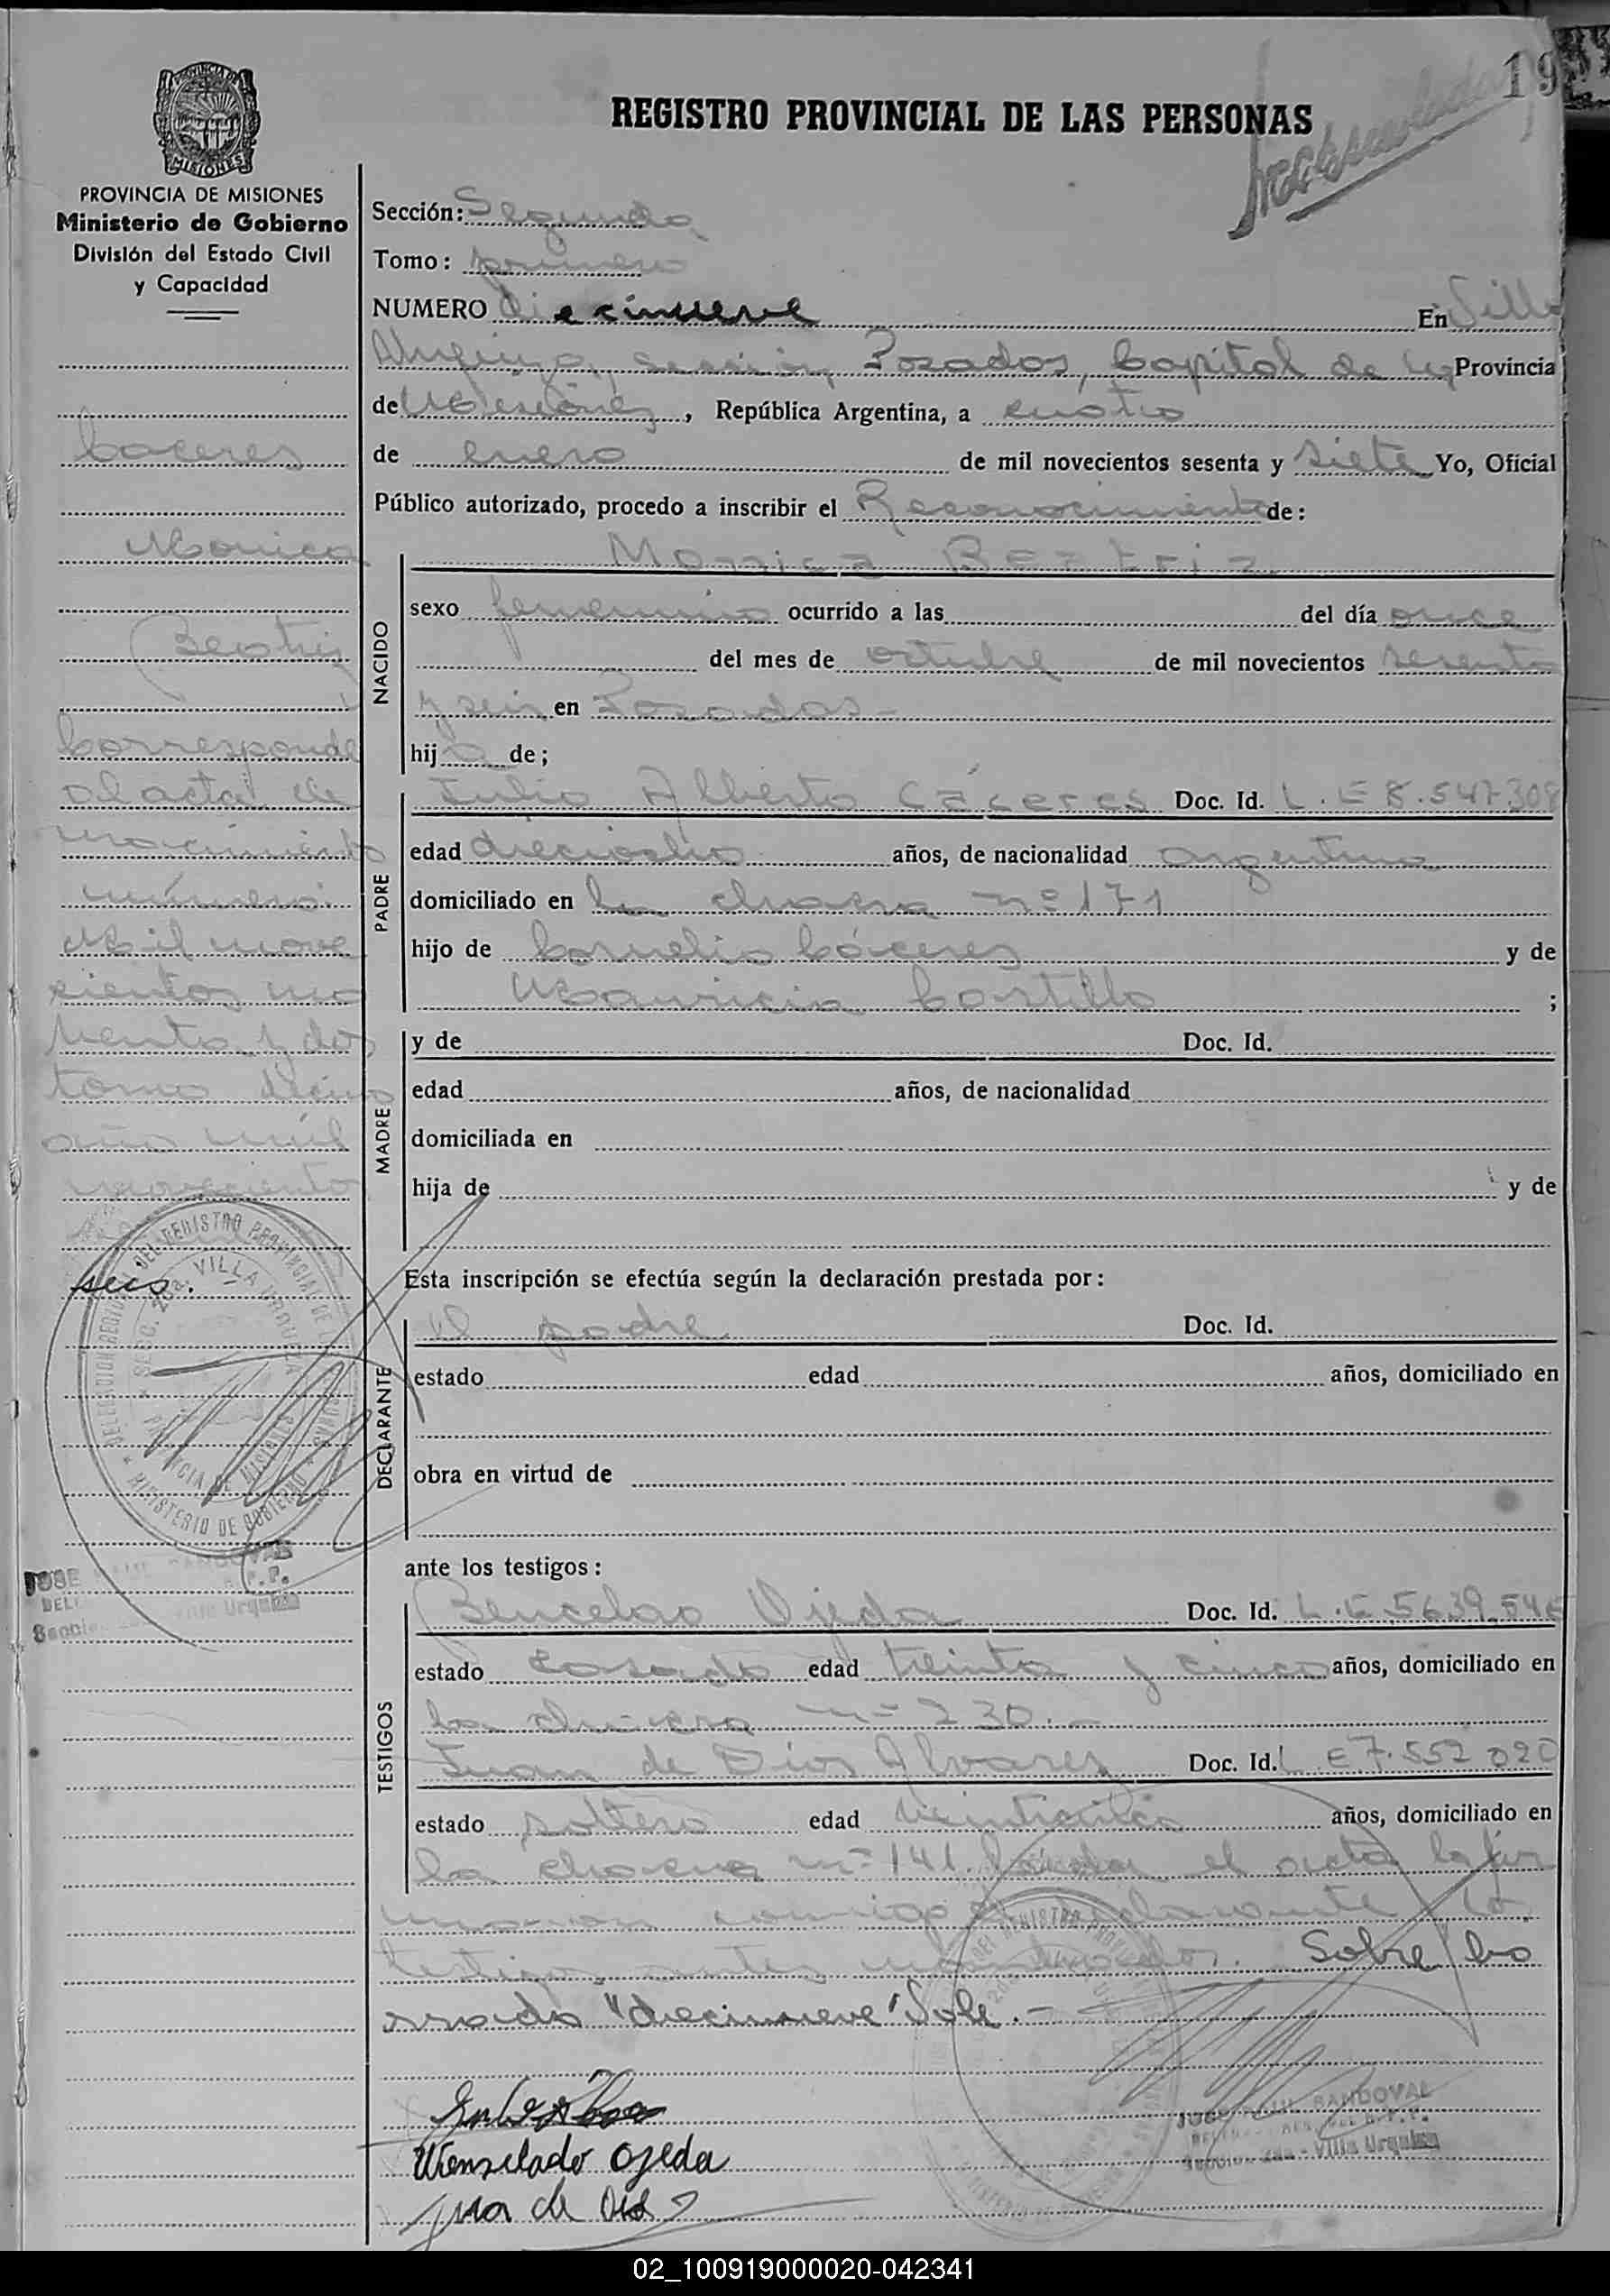 19
REGISTRO PROVINCIAL DE LAS PERSONAS
PROVINCIA DE
MISIONES
PROVINCIA DE MISIONES
Ministerio de Gobierno
División del Estado Civil
y Capacidad
Caceres
Monica
Beatriz
Corresponde
al acta de
nacimiento
número:
Mil nove
cientos no
venta y dos
tomo
año mil
novecientos
seis.
Sección: Segunda
Tomo: primero
NUMERO Diecinueve En Villa
Urquiza, sección, Posadas, Capital de la Provincia
de Misiones, República Argentina, a cuatro
de enero de mil novecientos sesenta y siete Yo, Oficial
Público autorizado, procedo a inscribir el Reconocimiento de:
NACIDO
Monica Beatriz
sexo femenino ocurrido a las del día once
del mes de octubre de mil novecientos sesenta
y seis en Posadas-
hija de;
PADRE
Julio Alberto Cáceres Doc. Id. L.E 8.547.308
edad dieciocho años, de nacionalidad argentino
domiciliado en la chacra nº 171
hijo de Cornelio Cáceres y de
Mauricia Castillo ;
MADRE
y de Doc. Id.
edad años, de nacionalidad
domiciliada en
hija de y de
Esta inscripción se efectúa según la declaración prestada por:
DECLARANTE
el padre Doc. Id.
estado edad años, domiciliado en
obra en virtud de
ante los testigos:
TESTIGOS
Bencelao Ojeda Doc. Id. L.E 5639.546
estado casado edad treinta y cinco años, domiciliado en
la chacra nº 230.-
Juan de Dios Alvarez Doc. Id. L E 7.552 020
estado soltero edad años, domiciliado en
la chacra nº 141. Leída el acta la fir
maron conmigo los
testigos antes mencionados. Sobre bo
rrado "diecinueve" Vale.-
Wenselado Ojeda
Jua de Dios
DELEGACION DEL REGISTRO PROVINCIAL DE LAS PERSONAS
SECC. 2da. VILLA URQUIZA
PROVINCIA DE MISIONES
MINISTERIO DE GOBIERNO
JOSE SANDOVAL
Sección 2da - Villa Urquiza
02_100919000020-042341